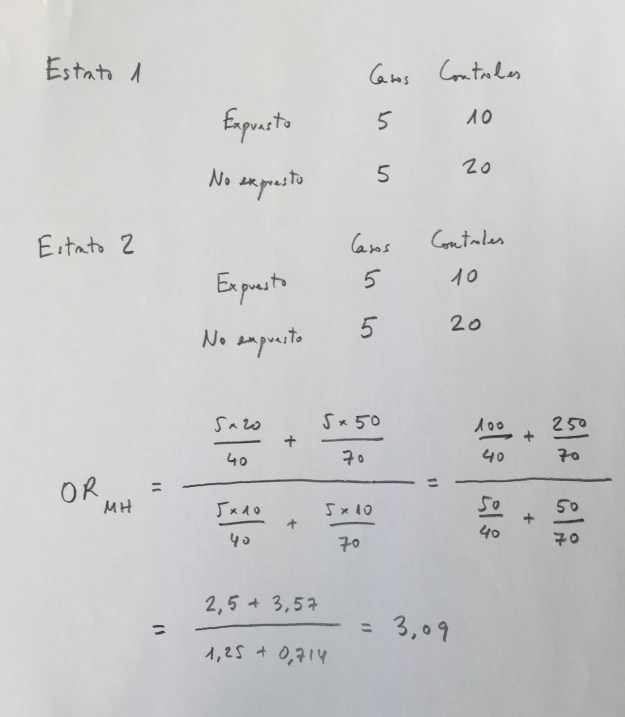 Estrato 1
Casos Controles
Expuesto 5 10
No expuesto 5 20
Estrato 2
Casos Controles
Expuesto 5 10
No expuesto 5 20
5x20 / 40 + 5x50 / 70 100 / 40 + 250 / 70
OR MH = =
5x10 / 40 + 5x10 / 70 50 / 40 + 50 / 70
2,5 + 3,57
= = 3,09
1,25 + 0,714